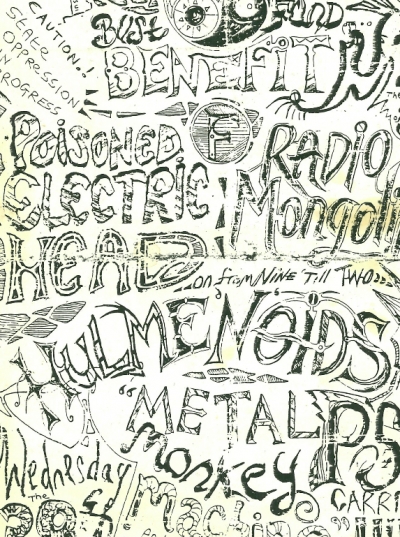 CAUTION..!
State
OPPRESSION
IN PROGRESS
Bust FUND
BENEFIT
F
POiSONED
ELECTRIC
HEAD
RADIO
Mongoli
..on from NINE 'Till TWO..
HULMENOIDS
"METAL PS
monkey
Wednesday
The
CARRI
machine"